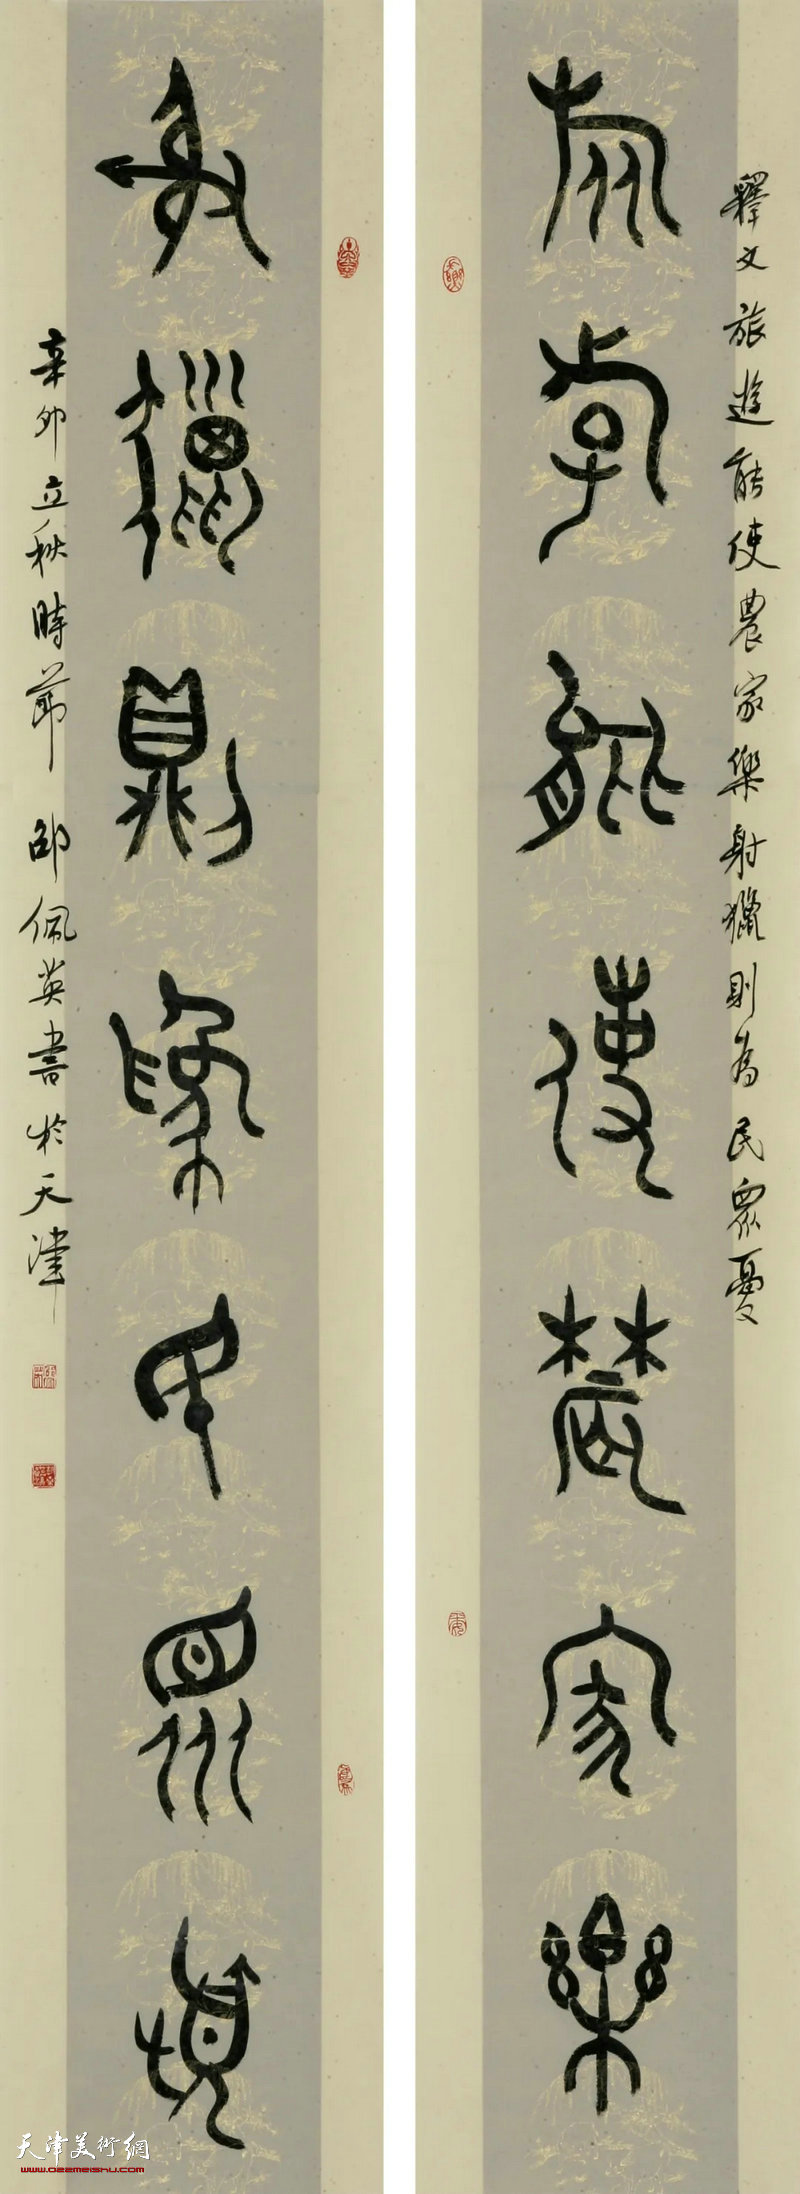 旅遊能使農家樂
釋文旅遊能使農家樂射獵則為民眾憂
射獵則為民眾憂
辛卯立秋時節 邵佩英書於天津
天津美術網
www.022meishu.com